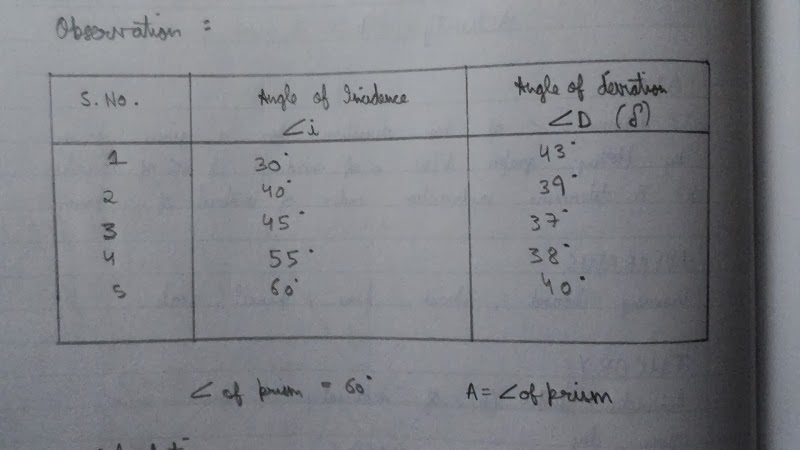 Observation :
S. No. Angle of Incidence ∠i Angle of deviation ∠D (δ)
1 30° 43°
2 40° 39°
3 45° 37°
4 55° 38°
5 60° 40°
∠ of prism = 60° A = ∠ of prism